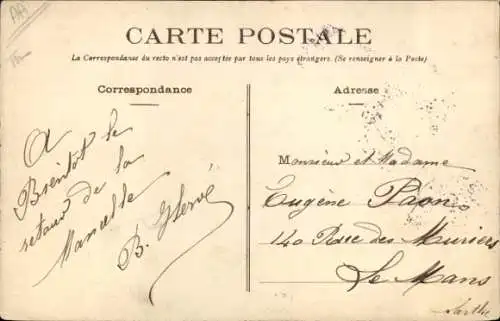 CARTE POSTALE
La Correspondance du recto n'est pas acceptée par tous les pays étrangers. (Se renseigner à la Poste)
Correspondance
A
Bientôt le
retour de la
Marcelle
B.
Adresse
Monsieur et Madame
Eugène Paon
140 Rue des Muriers
Le Mans
Sarthe